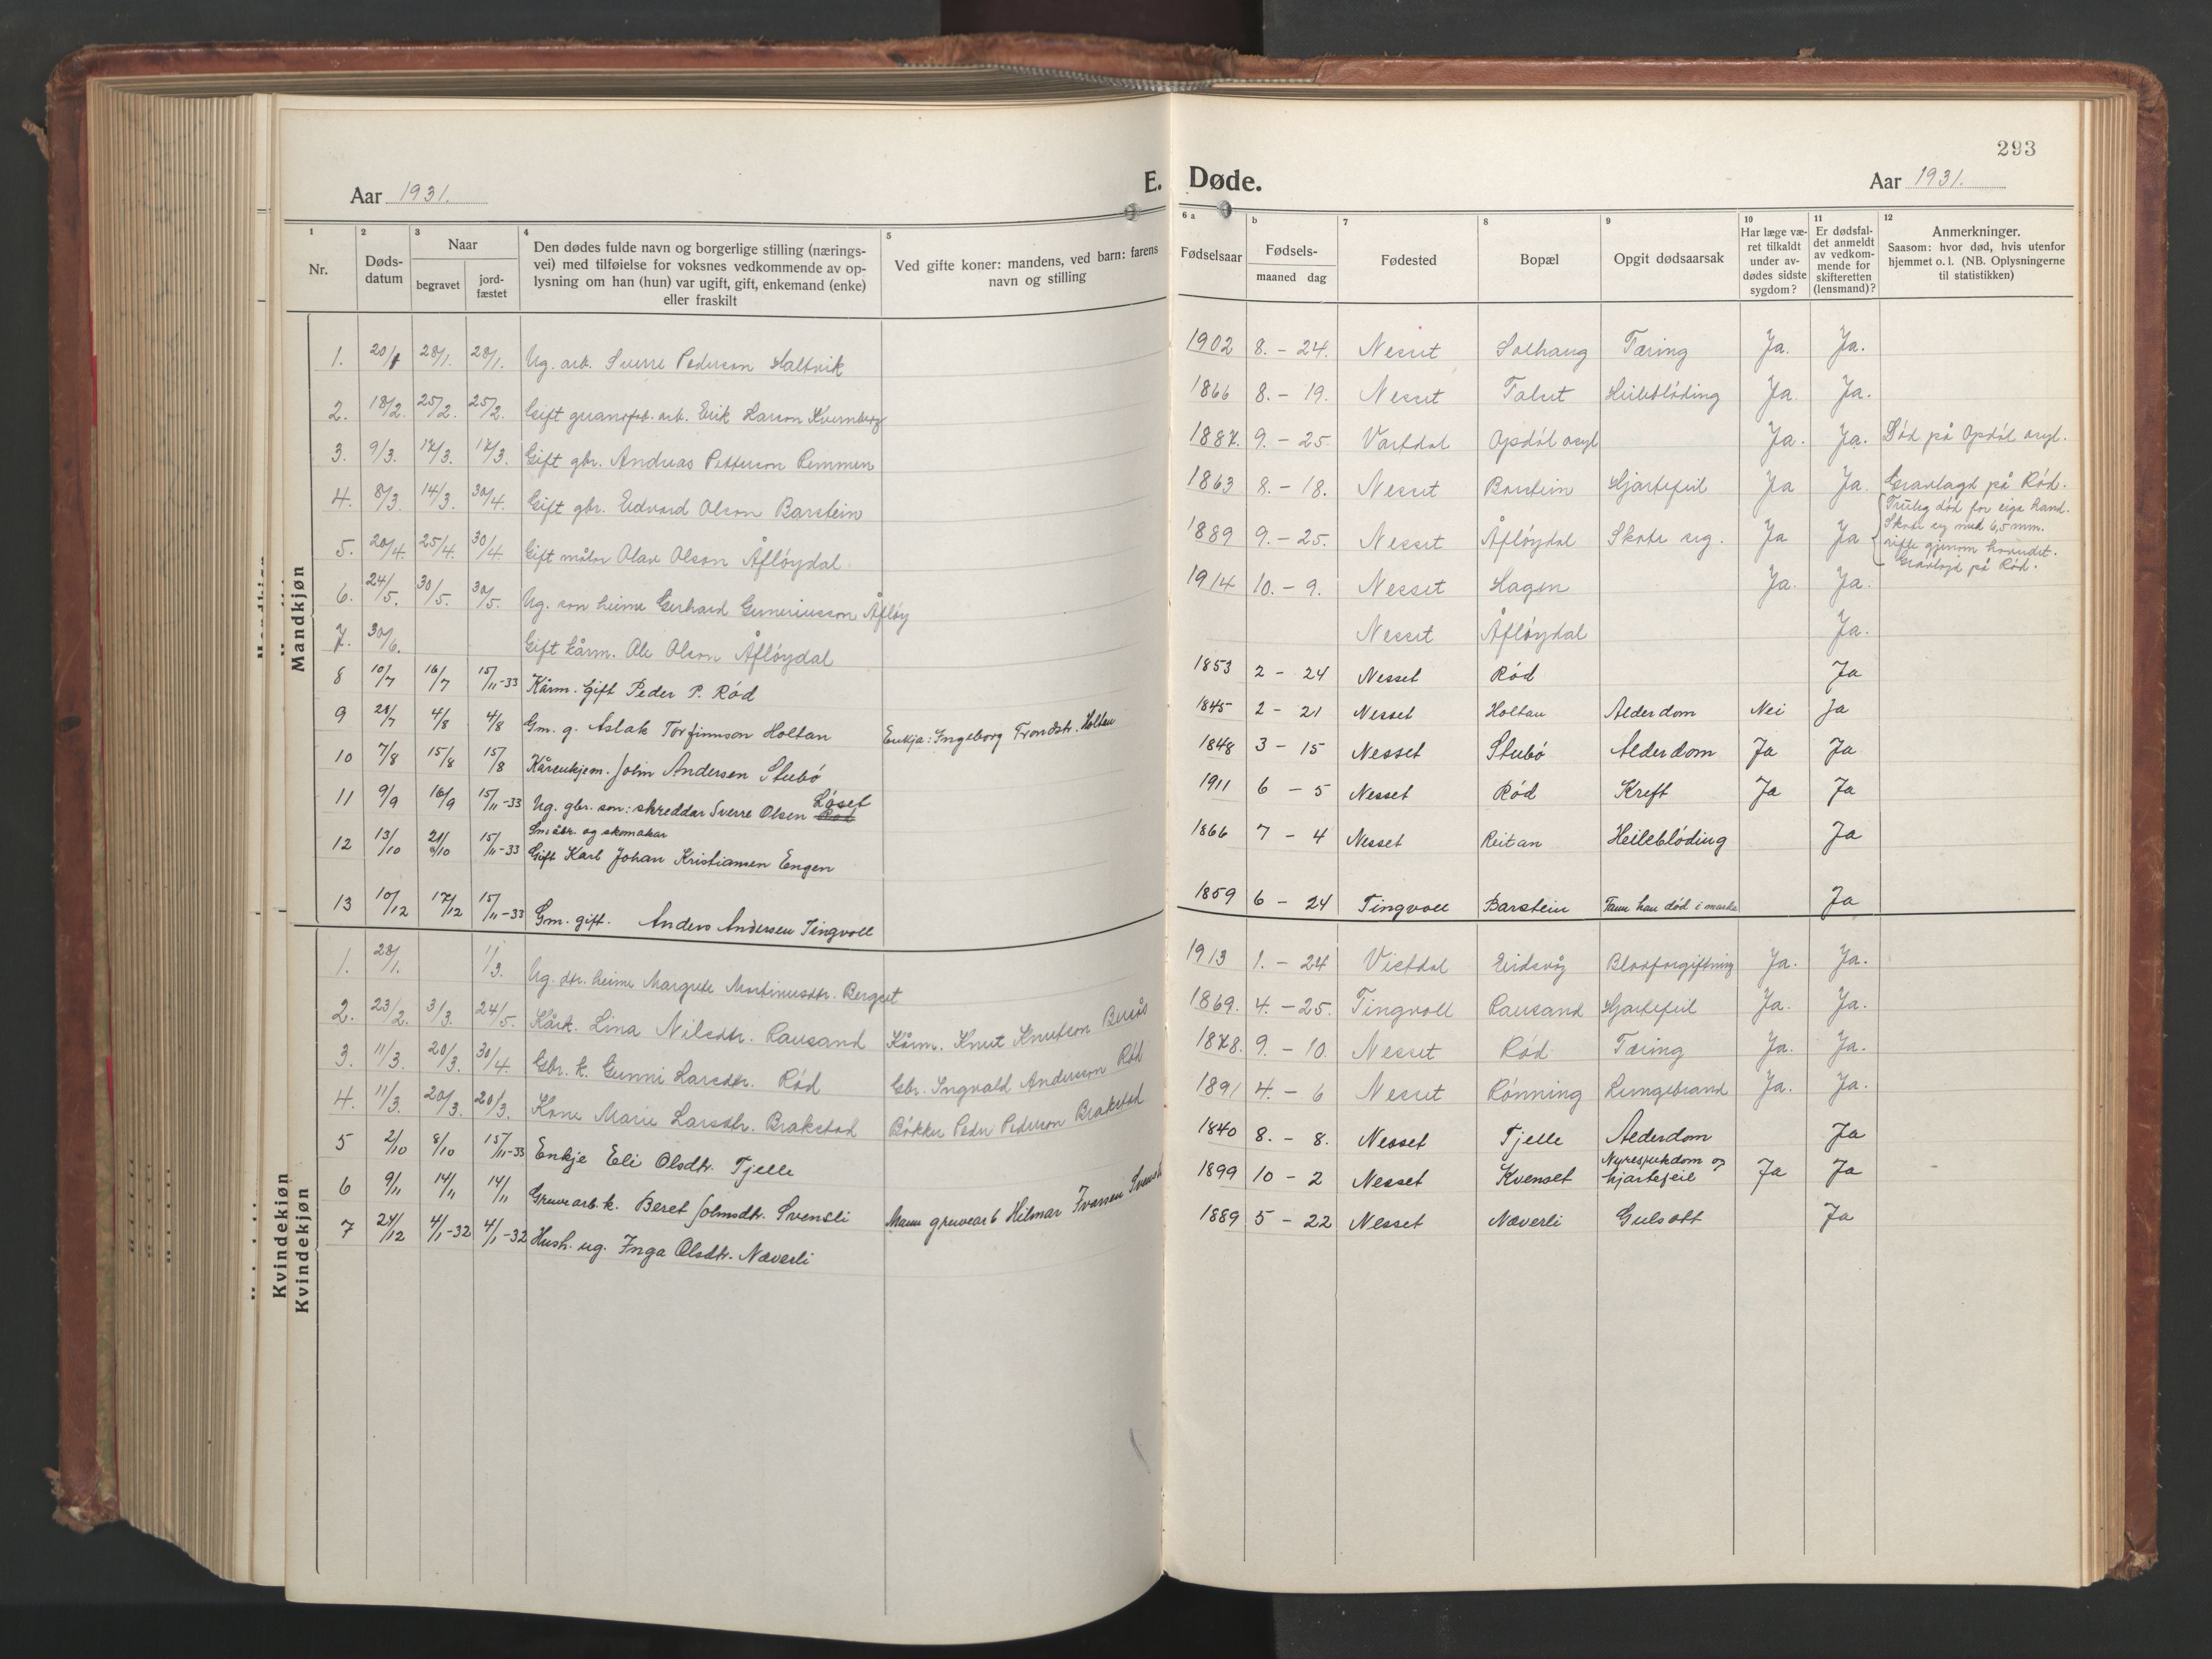 293
Aar 1931.
E. Døde.
Aar 1931.
1 Nr.
2 Dødsdatum
3 Naar begravet jordfæstet
4 Den dødes fulde navn og borgerlige stilling (næringsvei) med tilføielse for voksnes vedkommende av oplysning om han (hun) var ugift, gift, enkemand (enke) eller fraskilt
5 Ved gifte koner: mandens, ved barn: farens navn og stilling
6 a Fødselsaar
b Fødsels- maaned dag
7 Fødested
8 Bopæl
9 Opgit dødsaarsak
10 Har læge været tilkaldt under avdødes sidste sygdom?
11 Er dødsfaldet anmeldt av vedkommende for skifteretten (lensmand)?
12 Anmerkninger. Saasom: hvor død, hvis utenfor hjemmet o. l. (NB. Oplysningerne til statistikken)
Mandkjøn
1. 20/1 28/1. 28/1. Ug. arb. Sverre Pederson Haltvik 1902 8. - 24. Nesset Solhaug Tæring Ja. Ja.
2. 18/2. 25/2. 25/2. Gift guanofab. arb. Erik Larson Kvernberg 1866 8. - 19. Nesset Talset Heileblöding Ja. Ja.
3. 9/3. 17/3. 17/3. Gift gbr. Andreas Petterson Remmen 1887. 9. - 25 Vartdal Opdöl asyl Ja. Ja. Död på Opdöl asyl.
4. 8/3. 14/3. 30/4. Gift gbr. Edvard Olson Barstein 1863 8. - 18. Nesset Barstein Hjartefeil Ja Ja. Gravlagd på Röd.
5. 20/4. 25/4. 30/4. Gift målar Olav Olson Åflöydal 1889 9. - 25. Nesset Åflöydal Skote seg. Ja Ja Truleg död for eiga hand.
Skote seg med 6,5 mm.
rifle gjenom hovudet.
Gravlagd på Röd.
6. 24/5. 30/5. 30/5. Ug. son heime Gerhard Guneriusson Åflöy 1914 10. - 9. Nesset Hagen Ja. Ja.
7. 30/6. Gift kårm. Ole Olson Åflöydal Nesset Åflöydal Ja.
8 10/7 16/7 15/11-33 Kårm. Gift Peder P. Röd 1853 2 - 24 Nesset Röd Ja
9 28/7 4/8 4/8 Gm. g. Aslak Torfinnson Holtan Enkja: Ingeborg Trondstr. Holtan 1845 2 - 21 Nesset Holtan Alderdom Nei Ja
10 7/8 15/8 15/8 Kårenkjem. John Andersen Stubö 1848 3 - 15 Nesset Stubö Alderdom Ja Ja
11 9/9 16/9 15/11-33 Ug. gbr. son: skreddar Sverre Olsen Röd Löset 1911 6 - 5 Nesset Röd Kreft Ja Ja
12 13/10 21/10 15/11-33 Småbr. og skomakar
Gift Karl Johan Kristiansen Engen 1866 7 - 4 Nesset Reitan Heileblöding Ja
13 10/12 17/12 15/11-33 Gm. gift. Anders Andersen Tingvoll 1859 6 - 24 Tingvoll Barstein Fann han död i Ja
Kvindekjøn
1. 28/1. 1/3. Ug. dtr. heime Margrete Martinusdtr. Bergset 1913 1. - 24 Vistdal Eidsvåg Blodforgiftning Ja. Ja.
2. 23/2. 3/3. 24/5. Kårk. Lina Nilsdtr. Rausand Kårm. Knut Knutson 1869. 4. - 25. Tingvoll Rausand Hjartefeil Ja. Ja.
3. 11/3. 20/3. 30/4. Gbr. k. Gunni Larsdtr. Röd Gbr. Ingvald Anderson Röd 1878. 9. - 10. Nesset Röd Tæring Ja. Ja.
4. 11/3. 20/3. 20/3. Kone Marie Larsdtr. Brakstad Bökker Peder Pederson Brakstad 1891 4. - 6 Nesset Rönning Lungebrand Ja. Ja.
5 2/10 8/10 15/11-33 Enkje Eli Olsdtr. Tjelle 1840 8. - 8. Nesset Tjelle Alderdom Ja
6 9/11 14/11 14/11 Gruvearb. k. Beret Johnsdtr. Svensli Mann gruvearb Hilmar Ivarsen 1899 10 - 2 Nesset Kvenset Nyresjukdom og hjartefeil Ja Ja
7 24/12 4/1-32 4/1-32 Hush. ug. Inga Olsdtr. Næverli 1889 5 - 22 Nesset Næverli Gulsott Ja
Kvindekjøn